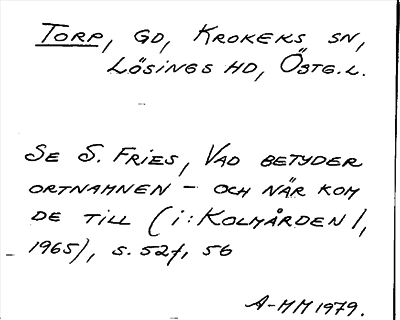 TORP, GD, KROKEKS SN,
LÖSINGS HD, ÖSTG.L.
SE S. FRIES, VAD BETYDER
ORTNAMNEN – OCH NÄR KOM
DE TILL (i: KOLMÅRDEN 1,
1965), S. 52f, 56
A-MM 1979.